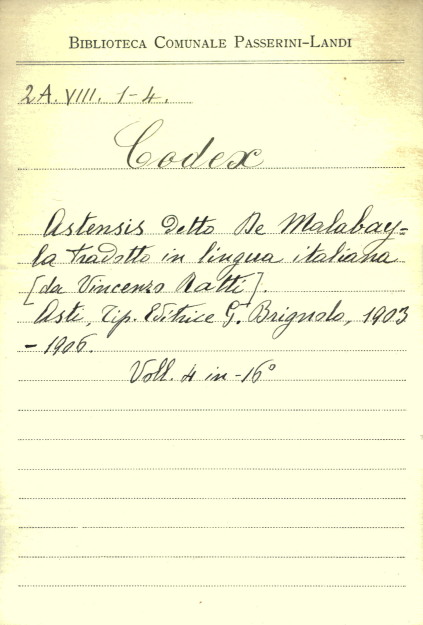 BIBLIOTECA COMUNALE PASSERINI-LANDI
2A. VIII. 1-4.
Codex
Astensis detto De Malabay=
la tradotto in lingua italiana
[da Vincenzo Ratti].
Asti, Tip. Editrice G. Brignolo, 1903
- 1906.
Voll. 4 in-16°